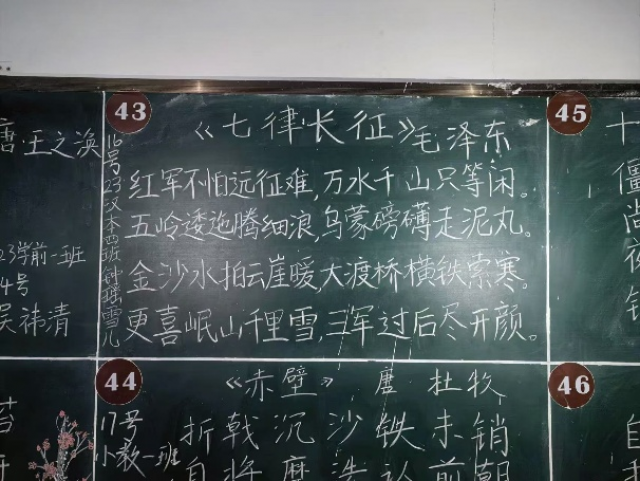 43
《七律·长征》毛泽东
16号23汉本四班钟瑶雪儿
红军不怕远征难,万水千山只等闲。
五岭逶迤腾细浪,乌蒙磅礴走泥丸。
金沙水拍云崖暖,大渡桥横铁索寒。
更喜岷山千里雪,三军过后尽开颜。
唐·王之涣
23学前一班
4号
吴祎清
44
《赤壁》 唐 杜牧
17号
小教一班
折戟沉沙铁未销
自将磨洗认前朝
45
46